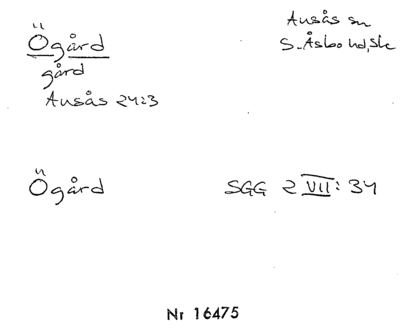 Ögård
Ausås sn
S. Åsbo hd, Sk
gård
Ausås 24:3
Ögård
SGG 2 VII: 34
Nr 16475